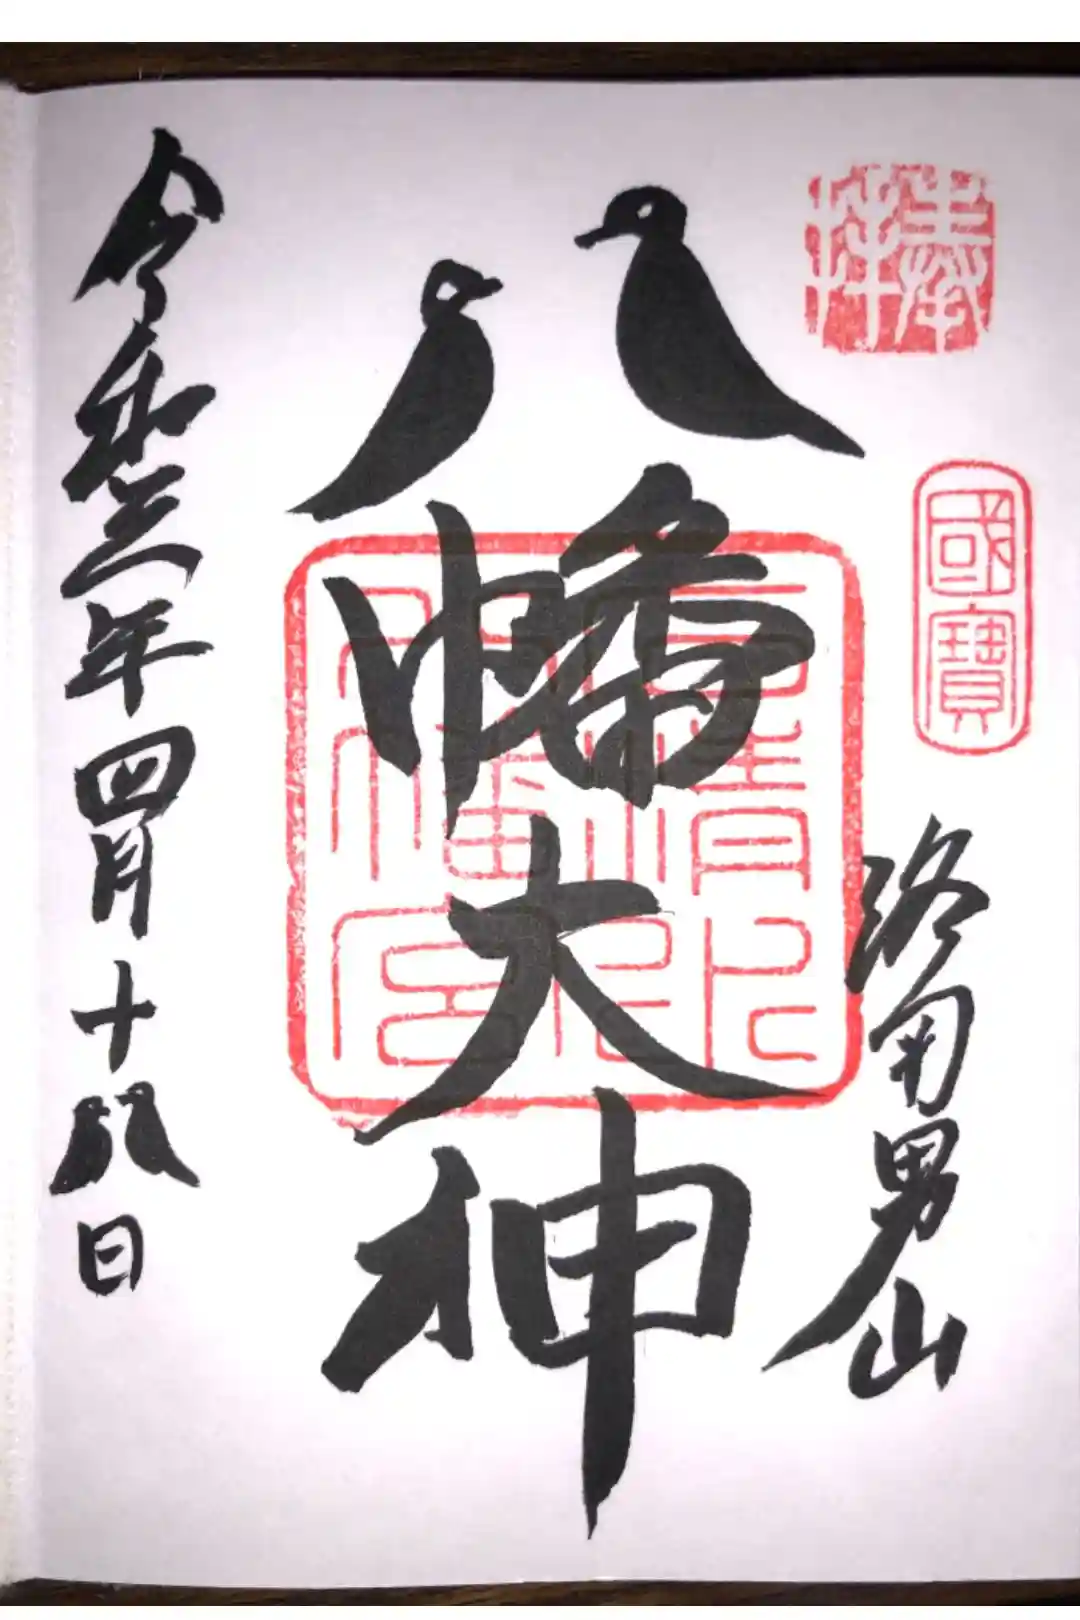 奉拝
國寶
洛南男山
八幡大神
石清水八幡宮
令和三年四月十八日